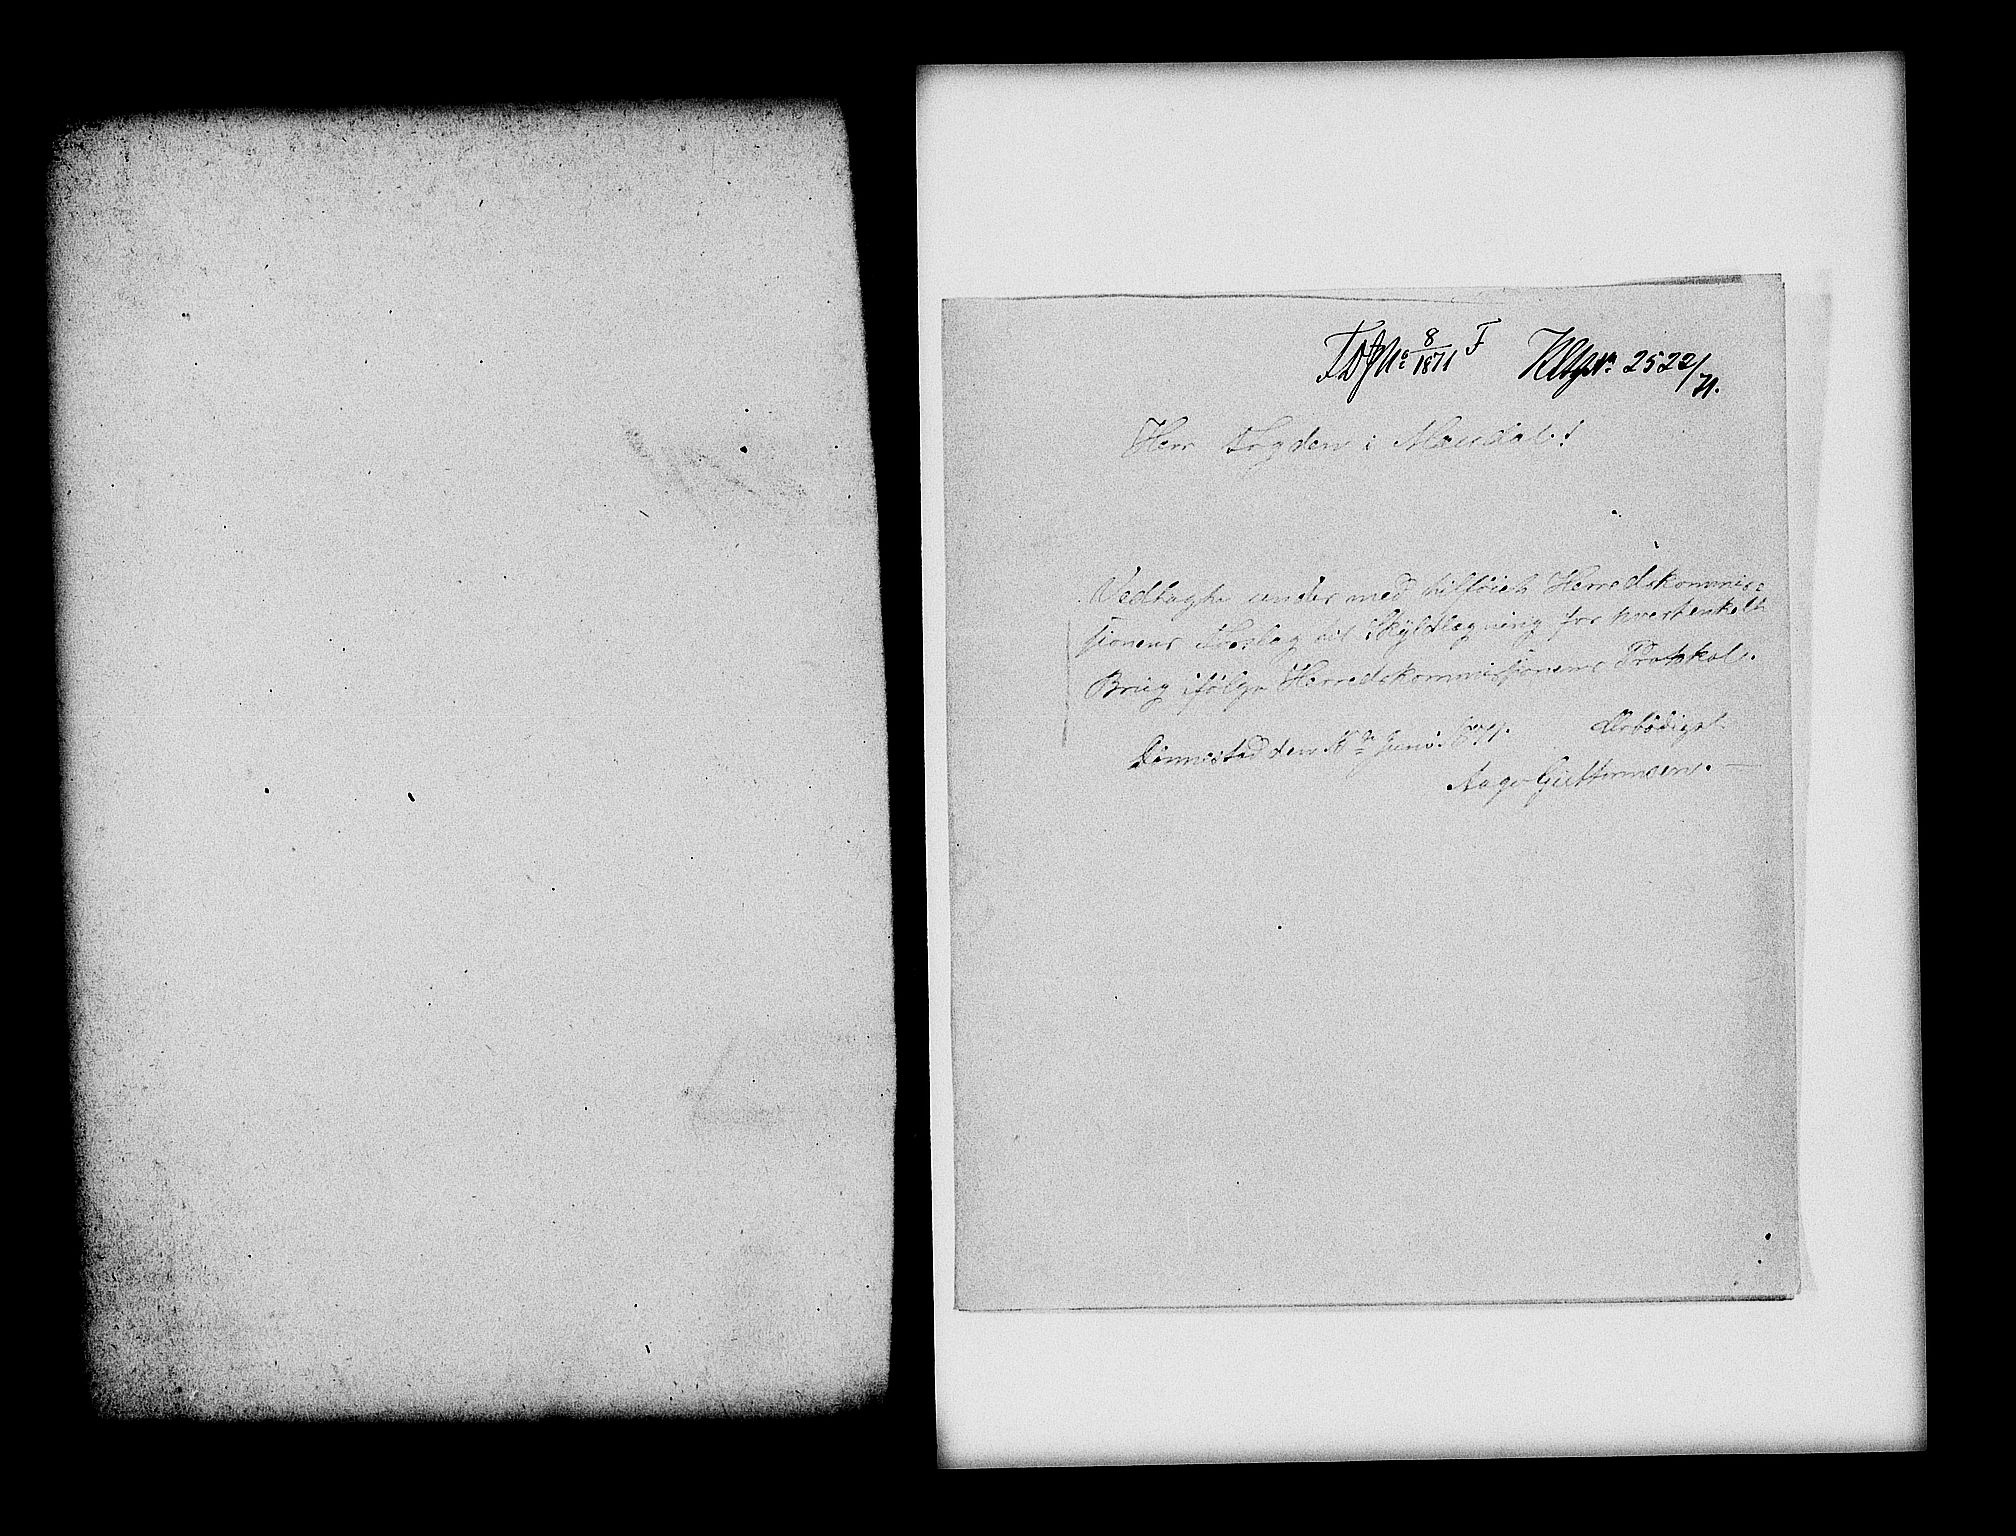 8/1871 F 2522/71.
Herr Fogden i Mandal!
Vedlagte under med tilføiet Herredskommis=
sionens Forslag til Skyldlægning for hvert enkelt
Brug ifølge Herredskommissionens Protokol.
den Juni 1871. Ærbödigst
Aage Guttormsen.